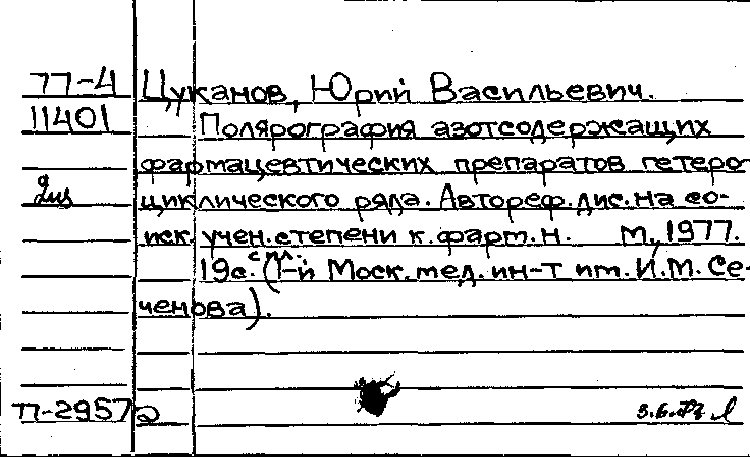 77-4 Цуканов, Юрий Васильевич.
11401 Полярография азотсодержащих
фармацевтических препаратов гетеро-
циклического ряда. Автореф. дис. на со-
иск. учен. степени к. фарм. н. М., 1977.
19с. (1-й Моск. мед. ин-т им. И.М. Се-
ченова).
П-2957